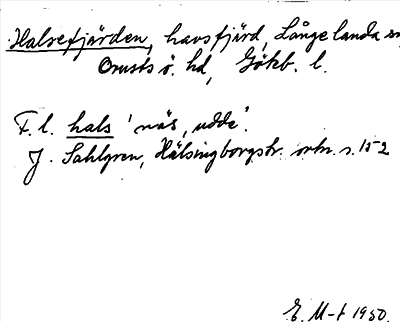 Halsefjärden, havsfjärd, Långelanda sn,
Orusts ö. hd, Göteb. l.
F. l. hals 'näs, udde'.
J. Sahlgren, Hälsingborgstr. ortn. s. 152
E. M-t 1950.